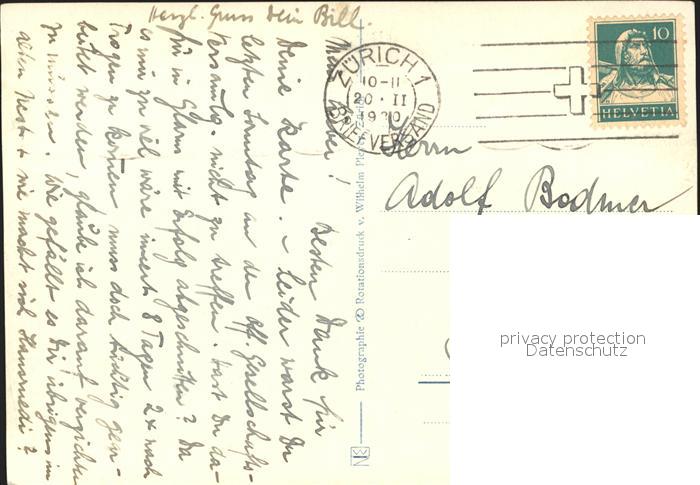 Herzl. Gruss Dein Bill.
Mein Lieber!
Besten Dank für
Deine Karte. – Leider warst Du
letzten Sonntag an der Off. Gesellschafts-
versamlg. nicht zu treffen. Hast Du da-
für in Glarus mit Erfolg abgeschnitten? Da
es mir zu viel wäre innert 8 Tagen 2x nach
Trogen zu kommen muss doch tüchtig gear-
beitet werden, glaube ich darauf verzichten
zu müssen. Wie gefällt es Dir übrigens im
alten Nest & wie macht sich
Photographie & Rotationsdruck v. Wilhelm Pleyer, Zürich
ZÜRICH 1
10-11
20.II
1930
BRIEFVERSAND
10
HELVETIA
Herrn
Adolf Bodmer
privacy protection
Datenschutz